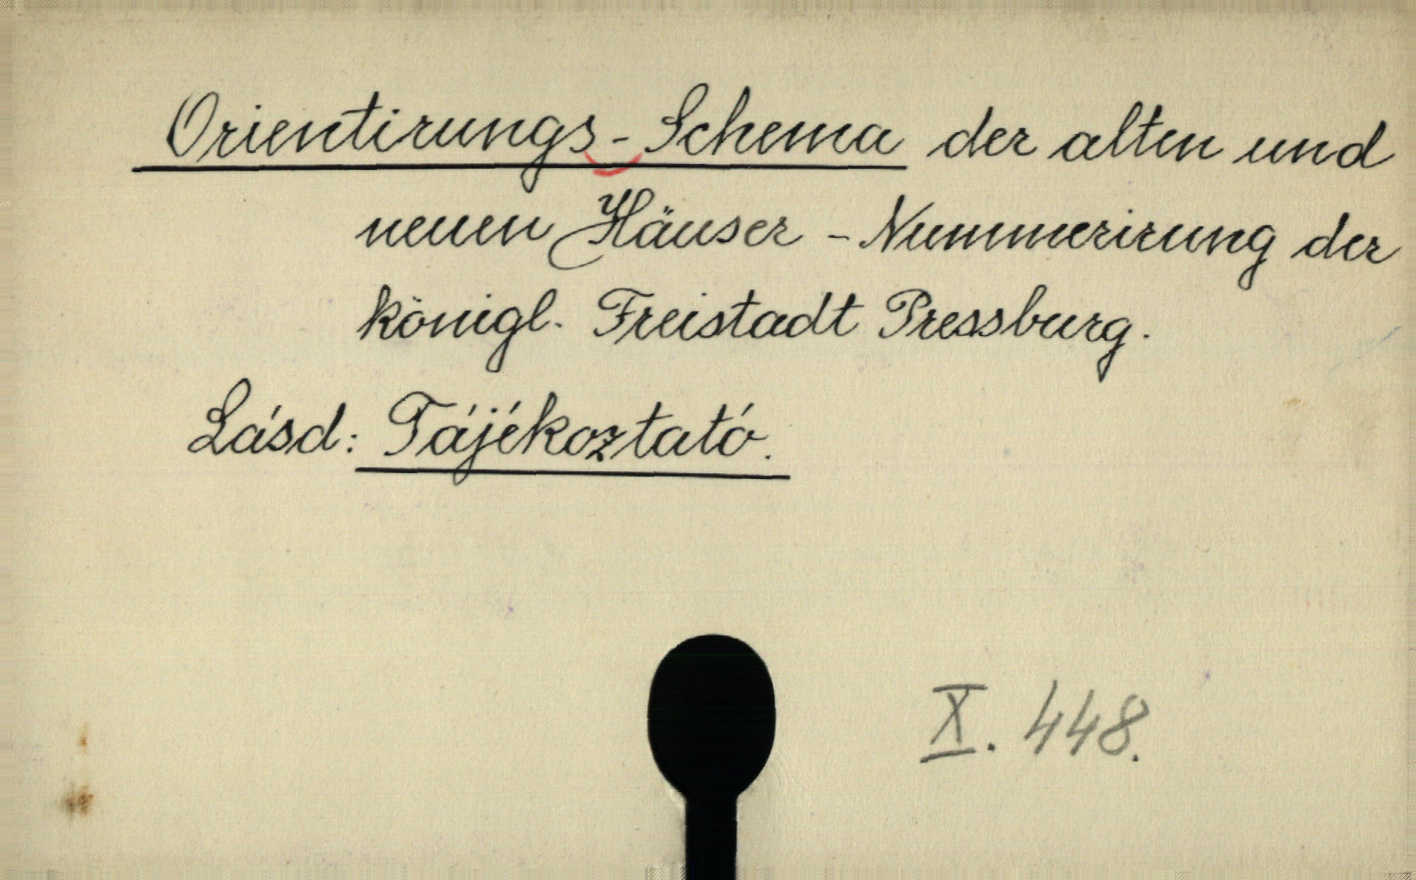 Orientirungs-Schema der alten und
neuen Häuser-Nummerirung der
königl. Freistadt Pressburg.
Lásd: Tájékoztató.
X. 448.